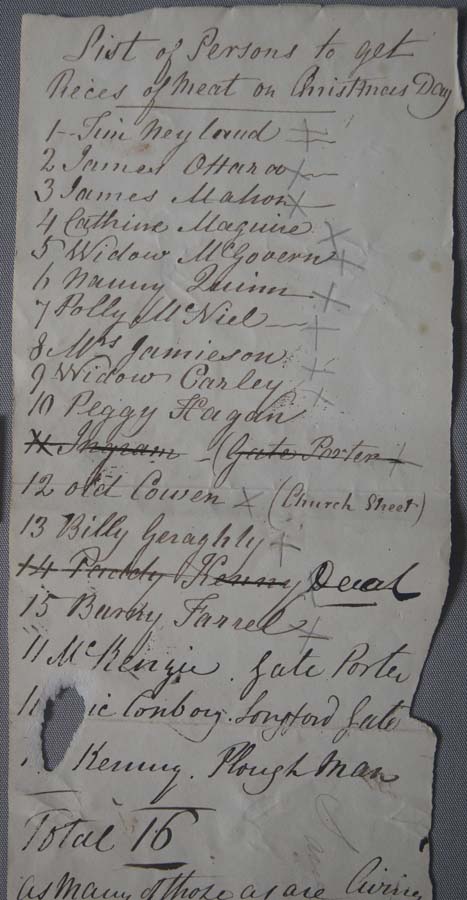 List of Persons to get
Pieces of Meat on Christmas Day
1 - Tim Neyland
2 James Ottara
3 James Mahon
4 Cathine Maguire
5 Widow McGovern
6 Nanny Quinn
7 Polly McNiel
8 Mrs Jamieson
9 Widow Carley
10 Peggy Hagan
11 Ingram - (Gate Porter
12 old Cowen x (Church Street)
13 Billy Geraghty
14 Paddy Kenny Dead
15 Barny Farrel
11 McKenzie. Gate Porter
Conboy. Longford Gate
Kenny. Plough Man
Total 16
as many of those as are living